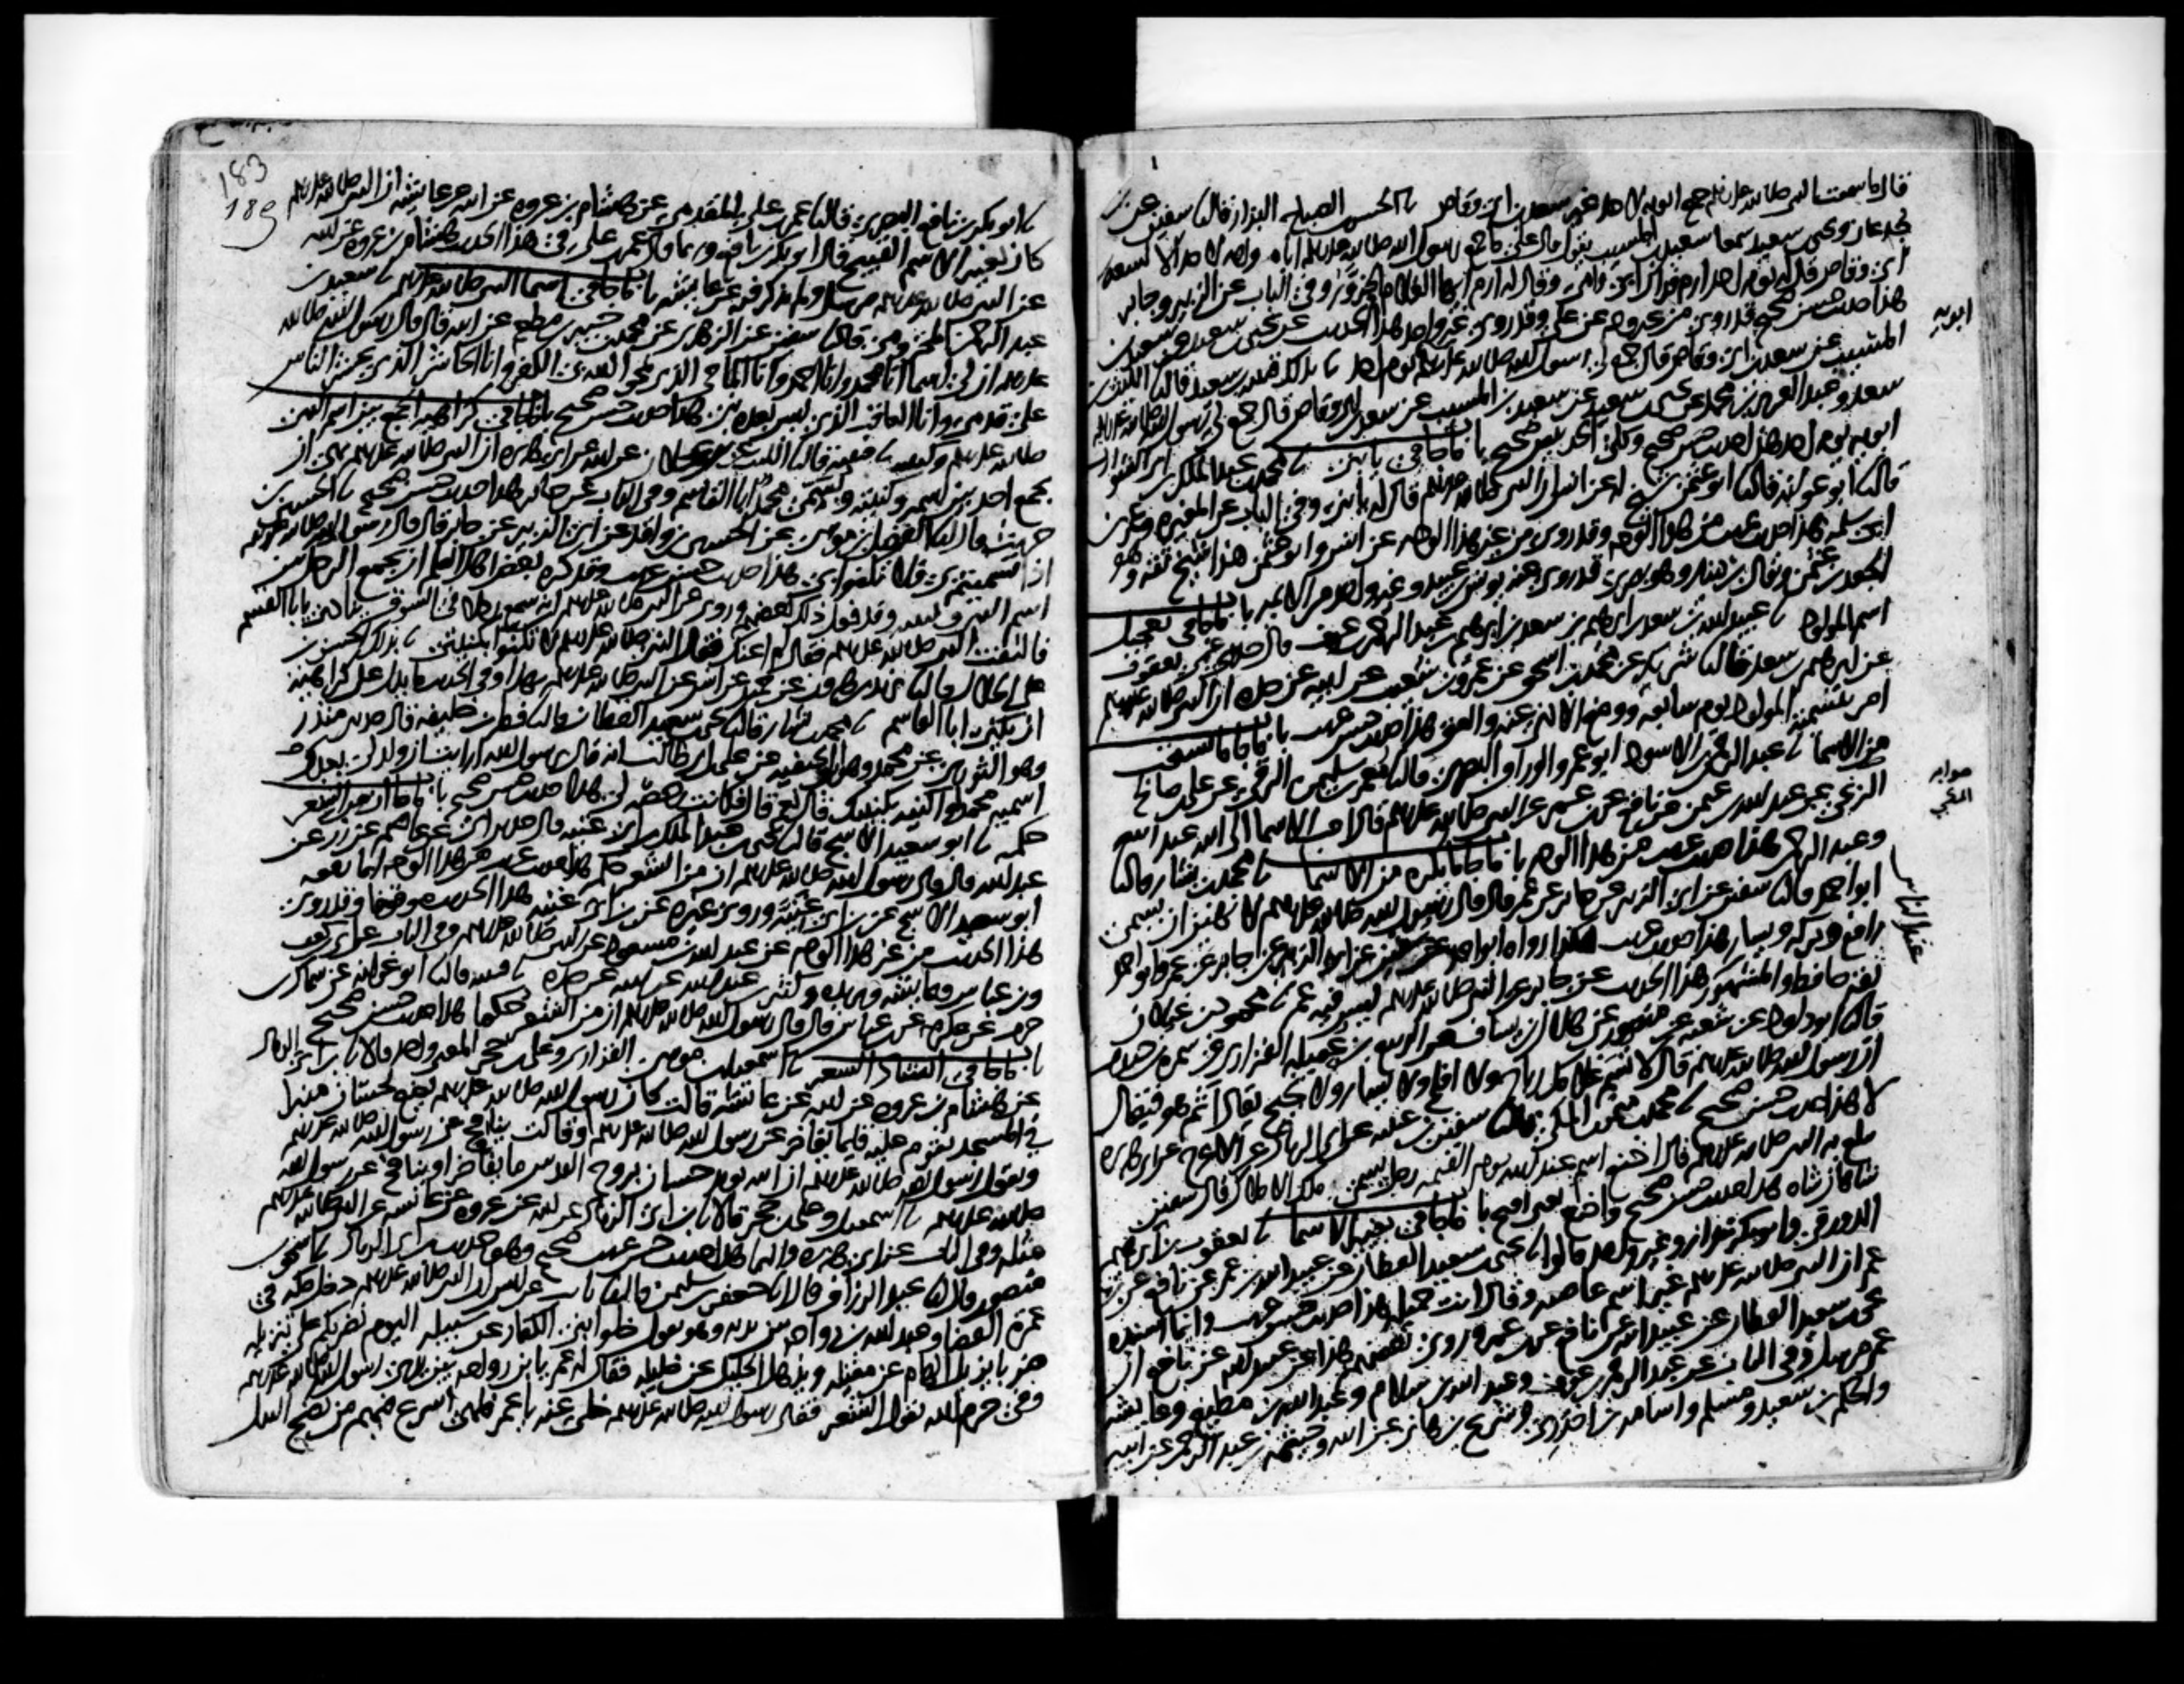 قال ما سمعت النبي صلى الله عليه وسلم جمع ابويه لاحد غير سعد بن ابي وقاص نا الحسن بن الصباح البزار قال نا سفين عن بن
جدعان ويحيى بن سعيد سمعا سعيد بن المسيب يقول قال علي ما جمع رسول الله صلى الله عليه وسلم اباه وامه لاحد الا لسعد بن
ابي وقاص قال له يوم احد ارم فداك ابي وامي وقال له ارم ايها الغلام الحزور وفي الباب عن الزبير وجابر
هذا حديث حسن صحيح قد روي من غير وجه عن علي وقد روى غير واحد هذا الحديث عن يحيى بن سعيد عن سعيد بن
المسيب عن سعد بن ابي وقاص قال جمع لي رسول الله صلى الله عليه وسلم يوم احد نا بذلك قتيبة بن سعيد قال نا الليث بن
سعد وعبد العزيز بن محمد عن يحيى بن سعيد عن سعيد بن المسيب عن سعد بن ابي وقاص قال جمع لي رسول الله صلى الله عليه وسلم
ابويه يوم احد هذا حديث حسن صحيح وكلى الحديثين صحيح باب ما جا في يا بني نا محمد بن عبد الملك بن ابي الشوارب
قال نا ابو عوانه قال نا ابو عثمن شيخ له عن انس ان النبي صلى الله عليه وسلم قال له يا بني وفي الباب عن المغيره وعمر بن
ابي سلمه هذا حديث غريب من هذا الوجه وقد روي من غير هذا الوجه عن انس وابو عثمن هذا شيخ ثقه وهو
الجعد بن عثمن ويقال بن دينار وهو بصري قد روى عنه يونس بن عبيد وغير واحد من الايمه باب ما جا في تعجيل
اسم المولود نا عبيد الله بن سعد بن ابرهيم بن سعد بن ابرهيم بن عبد الرحمن بن عوف قال حدثني عمي يعقوب
بن ابرهيم بن سعد قال نا شريك عن محمد بن اسحق عن عمرو بن شعيب عن ابيه عن جده ان النبي صلى الله عليه وسلم
امر بتسمية المولود يوم سابعه ووضع الاذى عنه والعق هذا حديث حسن غريب باب ما جا ما يستحب
من الاسما نا عبد الرحمن بن الاسود ابو عمرو الوراق البصري قال نا معمر بن سليمن الرقي عن علي بن صالح
الزنجي عن عبد الله بن عثمن عن نافع عن بن عمر عن النبي صلى الله عليه وسلم قال احب الاسما الى الله عبد الله
وعبد الرحمن هذا حديث غريب من هذا الوجه باب ما جا ما يكره من الاسما نا محمد بن بشار قال نا
ابو احمد قال نا سفين عن ابي الزبير عن جابر عن عمر قال قال رسول الله صلى الله عليه وسلم لانهين ان يسمى
رافع وبركه ويسار هذا حديث غريب هكذا رواه ابو احمد عن سفين عن ابي الزبير عن جابر عن عمر وابو احمد
ثقه حافظ والمشهور هذا الحديث عن جابر عن النبي صلى الله عليه وسلم ليس فيه عمر نا محمود بن غيلان
قال نا ابو داود عن شعبه عن منصور عن هلال بن يساف عن الربيع بن عميله الفزاري عن سمره بن جندب
ان رسول الله صلى الله عليه وسلم قال لا تسم غلامك رباح ولا افلح ولا يسار ولا نجيح يقال اثم هو فيقال
لا هذا حديث حسن صحيح نا محمد بن ميمون المكي قال نا سفين بن عيينه عن ابي الزناد عن الاعرج عن ابي هريره
يبلغ به النبي صلى الله عليه وسلم قال اخنع اسم عند الله يوم القيمه رجل يسمى ملك الاملاك قال سفين
شاهان شاه هذا حديث حسن صحيح واخنع يعني اقبح باب ما جا في تغيير الاسما نا يعقوب بن ابرهيم
الدورقي وابو بكر بندار وغير واحد قالوا نا يحيى بن سعيد القطان عن عبيد الله بن عمر عن نافع عن بن
عمر ان النبي صلى الله عليه وسلم غير اسم عاصيه وقال انت جميله هذا حديث حسن غريب وانما اسنده
يحيى بن سعيد القطان عن عبيد الله عن نافع عن بن عمر وروى بعضهم هذا عن عبيد الله عن نافع ان
عمر مرسلا وفي الباب عن عبد الرحمن بن عوف وعبد الله بن سلام وعبد الله بن مطيع وعايشه
والحكم بن سعيد ومسلم واسامه بن اخدري وشريح بن هاني عن ابيه وخيثمه بن عبد الرحمن عن ابيه
ابويه
عند الناس
183
189
نا ابو بكر بن نافع البصري قال نا عمر بن علي المقدمي عن هشام بن عروه عن ابيه عن عايشه ان النبي صلى الله عليه وسلم
كان يغير الاسم القبيح قال ابو بكر بن نافع وربما قال عمر بن علي في هذا الحديث هشام بن عروه عن ابيه
عن النبي صلى الله عليه وسلم مرسل ولم يذكر فيه عن عايشه باب ما جا في اسما النبي صلى الله عليه وسلم نا سعيد بن
عبد الرحمن المخزومي قال نا سفين عن الزهري عن محمد بن جبير بن مطعم عن ابيه قال قال رسول الله صلى الله
عليه وسلم ان لي اسما انا محمد وانا احمد وانا الماحي الذي يمحو الله بي الكفر وانا الحاشر الذي يحشر الناس
على قدمي وانا العاقب الذي ليس بعده نبي هذا حديث حسن صحيح باب ما جا في كراهيه الجمع بين اسم النبي
صلى الله عليه وسلم وكنيته نا قتيبه قال نا الليث عن بن عجلان عن ابيه عن ابي هريره ان النبي صلى الله عليه وسلم نهى ان
يجمع احد بين اسمه وكنيته ويسمى محمدا ابا القاسم وفي الباب عن جابر هذا حديث حسن صحيح نا الحسين بن
حريث قال نا الفضل بن موسى عن الحسين بن واقد عن ابي الزبير عن جابر قال قال رسول الله صلى الله عليه وسلم
اذا تسميتم بي فلا تكتنوا بي هذا حديث حسن غريب وقد كره بعض اهل العلم ان يجمع الرجل بين
اسم النبي وكنيته وقد فعل ذلك بعضهم وروي عن النبي صلى الله عليه وسلم انه سمع رجلا في السوق ينادي يا ابا القسم
فالتفت النبي صلى الله عليه وسلم فقال لم اعنك فقال النبي صلى الله عليه وسلم لا تكتنوا بكنيتي نا بذلك الحسن بن
علي الخلال قال نا يزيد بن هرون عن حميد عن انس عن النبي صلى الله عليه وسلم بهذا وفي الحديث ما يدل على كراهية
ان يكنى ابا القاسم نا محمد بن بشار قال نا يحيى بن سعيد القطان قال نا فطر بن خليفه قال حدثني منذر
وهو الثوري عن محمد وهو بن الحنفيه عن علي بن ابي طالب انه قال يرسول الله ارايت ان ولد لي بعدك
اسميه محمدا واكنيه بكنيتك قال نعم قال فكانت رخصة لي هذا حديث حسن صحيح باب ما جا ان من الشعر
حكمه نا ابو سعيد الاشج قال نا يحيى بن عبد الملك بن ابي غنيه قال حدثني ابي عن عاصم عن زر عن
عبد الله قال قال رسول الله صلى الله عليه وسلم ان من الشعر حكمه هذا حديث غريب من هذا الوجه انما رفعه
ابو سعيد الاشج عن بن ابي غنيه وروى غيره عن بن ابي غنيه هذا الحديث موقوفا وقد روي
هذا الحديث من غير هذا الوجه عن عبد الله بن مسعود عن النبي صلى الله عليه وسلم وفي الباب عن ابي بن كعب
وبن عباس وعايشه وبريده وكثير بن عبد الله عن ابيه عن جده نا قتيبه قال نا ابو عوانه عن سماك بن
حرب عن عكرمه عن بن عباس قال قال رسول الله صلى الله عليه وسلم ان من الشعر حكما هذا حديث حسن صحيح
باب ما جا في انشاد الشعر نا اسمعيل بن موسى الفزاري وعلي بن حجر المعنى واحد قالا نا بن ابي الزناد
عن هشام بن عروه عن ابيه عن عايشه قالت كان رسول الله صلى الله عليه وسلم يضع لحسان منبرا
في المسجد يقوم عليه قايما يفاخر عن رسول الله صلى الله عليه وسلم او قالت ينافح عن رسول الله صلى الله عليه وسلم
ويقول رسول الله صلى الله عليه وسلم ان الله يويد حسان بروح القدس ما يفاخر او ينافح عن رسول الله
صلى الله عليه وسلم نا اسمعيل وعلي بن حجر قالا نا بن ابي الزناد عن ابيه عن عروه عن عايشه عن النبي صلى الله عليه وسلم
مثله وفي الباب عن ابي هريره والبرا هذا حديث حسن غريب صحيح وهو حديث بن ابي الزناد نا اسحق بن
منصور قال نا عبد الرزاق قال نا جعفر بن سليمن قال نا ثابت عن انس ان النبي صلى الله عليه وسلم دخل مكه في
عمرة القضا وعبد الله بن رواحه بين يديه وهو يقول خلوا بني الكفار عن سبيله اليوم نضربكم على تنزيله
ضربا يزيل الهام عن مقيله ويذهل الخليل عن خليله فقال له عمر يا بن رواحه بين يدي رسول الله صلى الله عليه وسلم
وفي حرم الله تقول الشعر فقال رسول الله صلى الله عليه وسلم خل عنه يا عمر فلهي اسرع فيهم من نضح النبل